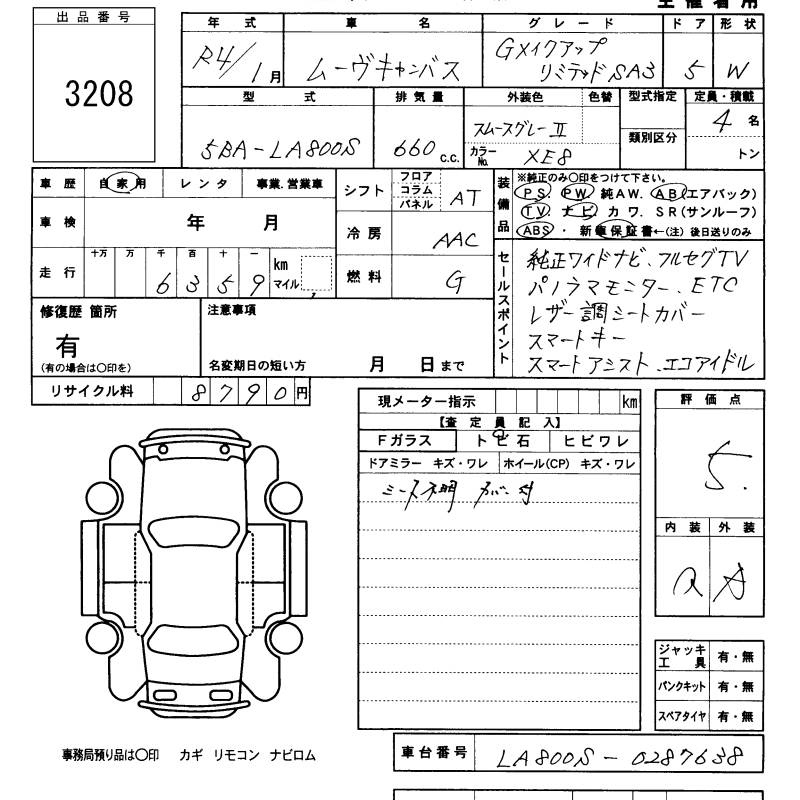 主催者用
出品番号
3208
年式 車名 グレード ドア 形状
R4/1月 ムーヴキャンバス GXイクアップ リミテッドSA3 5 W
型式 排気量 外装色 色替 型式指定 定員・積載
5BA-LA800S 660 c.c. スムースグレーⅡ 類別区分 4名
カラーNo. XE8 トン
車歴 自家用 レンタ 事業.営業車
シフト フロア コラム パネル AT
車検 年 月
冷房 AAC
走行 十万 万 千 百 十 一 6359 km マイル
燃料 G
装備品 ※純正のみ〇印をつけて下さい。
PS. PW 純AW. AB(エアバック)
TV. ナビ カワ. SR(サンルーフ)
ABS・新車保証書←(注) 後日送りのみ
セールスポイント
純正ワイドナビ、フルセグTV
パノラマモニター、ETC
レザー調シートカバー
スマートキー
スマートアシスト、エコアイドル
修復歴 箇所 注意事項
有
(有の場合は〇印を) 名変期日の短い方 月 日まで
リサイクル料 8790円
現メーター指示 km
【査定員記入】
Fガラス トビ石 ヒビワレ
ドアミラー キズ・ワレ ホイール(CP) キズ・ワレ
シース不明 カバー付
評価点
5.
内装 外装
A
ジャッキ工具 有・無
パンクキット 有・無
スペアタイヤ 有・無
事務局預り品は〇印 カギ リモコン ナビロム
車台番号 LA800S-0287638